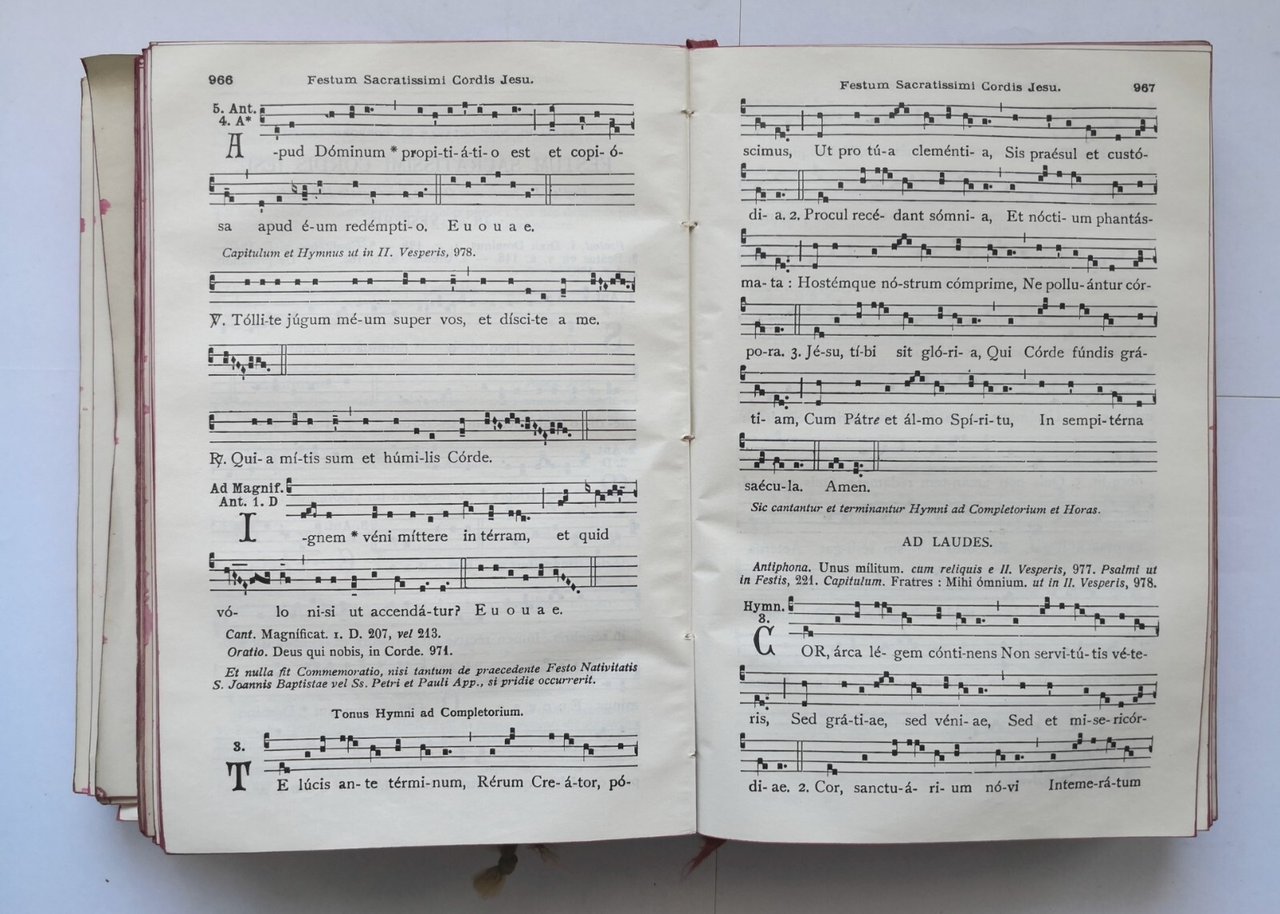 966 Festum Sacratissimi Cordis Jesu.
5. Ant.
4. A*
A -pud Dóminum * propi-ti-á-ti-o est et copi-ó-
sa apud é-um redémpti-o. E u o u a e.
Capitulum et Hymnus ut in II. Vesperis, 978.
℣. Tólli-te júgum mé-um super vos, et dísci-te a me.
℟. Qui-a mí-tis sum et húmi-lis Córde.
Ad Magnif.
Ant. 1. D
I -gnem * véni míttere in térram, et quid
vó- lo ni-si ut accendá-tur? E u o u a e.
Cant. Magníficat. 1. D. 207, vel 213.
Oratio. Deus qui nobis, in Corde. 971.
Et nulla fit Commemoratio, nisi tantum de praecedente Festo Nativitatis
S. Joannis Baptistae vel Ss. Petri et Pauli App., si pridie occurrerit.
Tonus Hymni ad Completorium.
3.
T E lúcis an-te términum, Rérum Cre-á-tor, pó-
Festum Sacratissimi Cordis Jesu. 967
scimus, Ut pro tú-a cleménti-a, Sis praésul et custó-
di-a. 2. Procul recé-dant sómni-a, Et nócti-um phantás-
ma-ta : Hostémque nó-strum cómprime, Ne pollu-ántur cór-
po-ra. 3. Jé-su, tí-bi sit gló-ri-a, Qui Córde fúndis grá-
ti-am, Cum Pátre et ál-mo Spí-ri-tu, In sempi-térna
saécu-la. Amen.
Sic cantantur et terminantur Hymni ad Completorium et Horas.
AD LAUDES.
Antiphona. Unus mílitum. cum reliquis e II. Vesperis, 977. Psalmi ut
in Festis, 221. Capitulum. Fratres : Mihi ómnium. ut in II. Vesperis, 978.
Hymn.
3.
C OR, árca lé-gem cónti-nens Non servi-tú-tis véte-
ris, Sed grá-ti-ae, sed véni-ae, Sed et mi-se-ricór-
di-ae. 2. Cor, sanctu-á-ri-um nó-vi Inteme-rá-tum